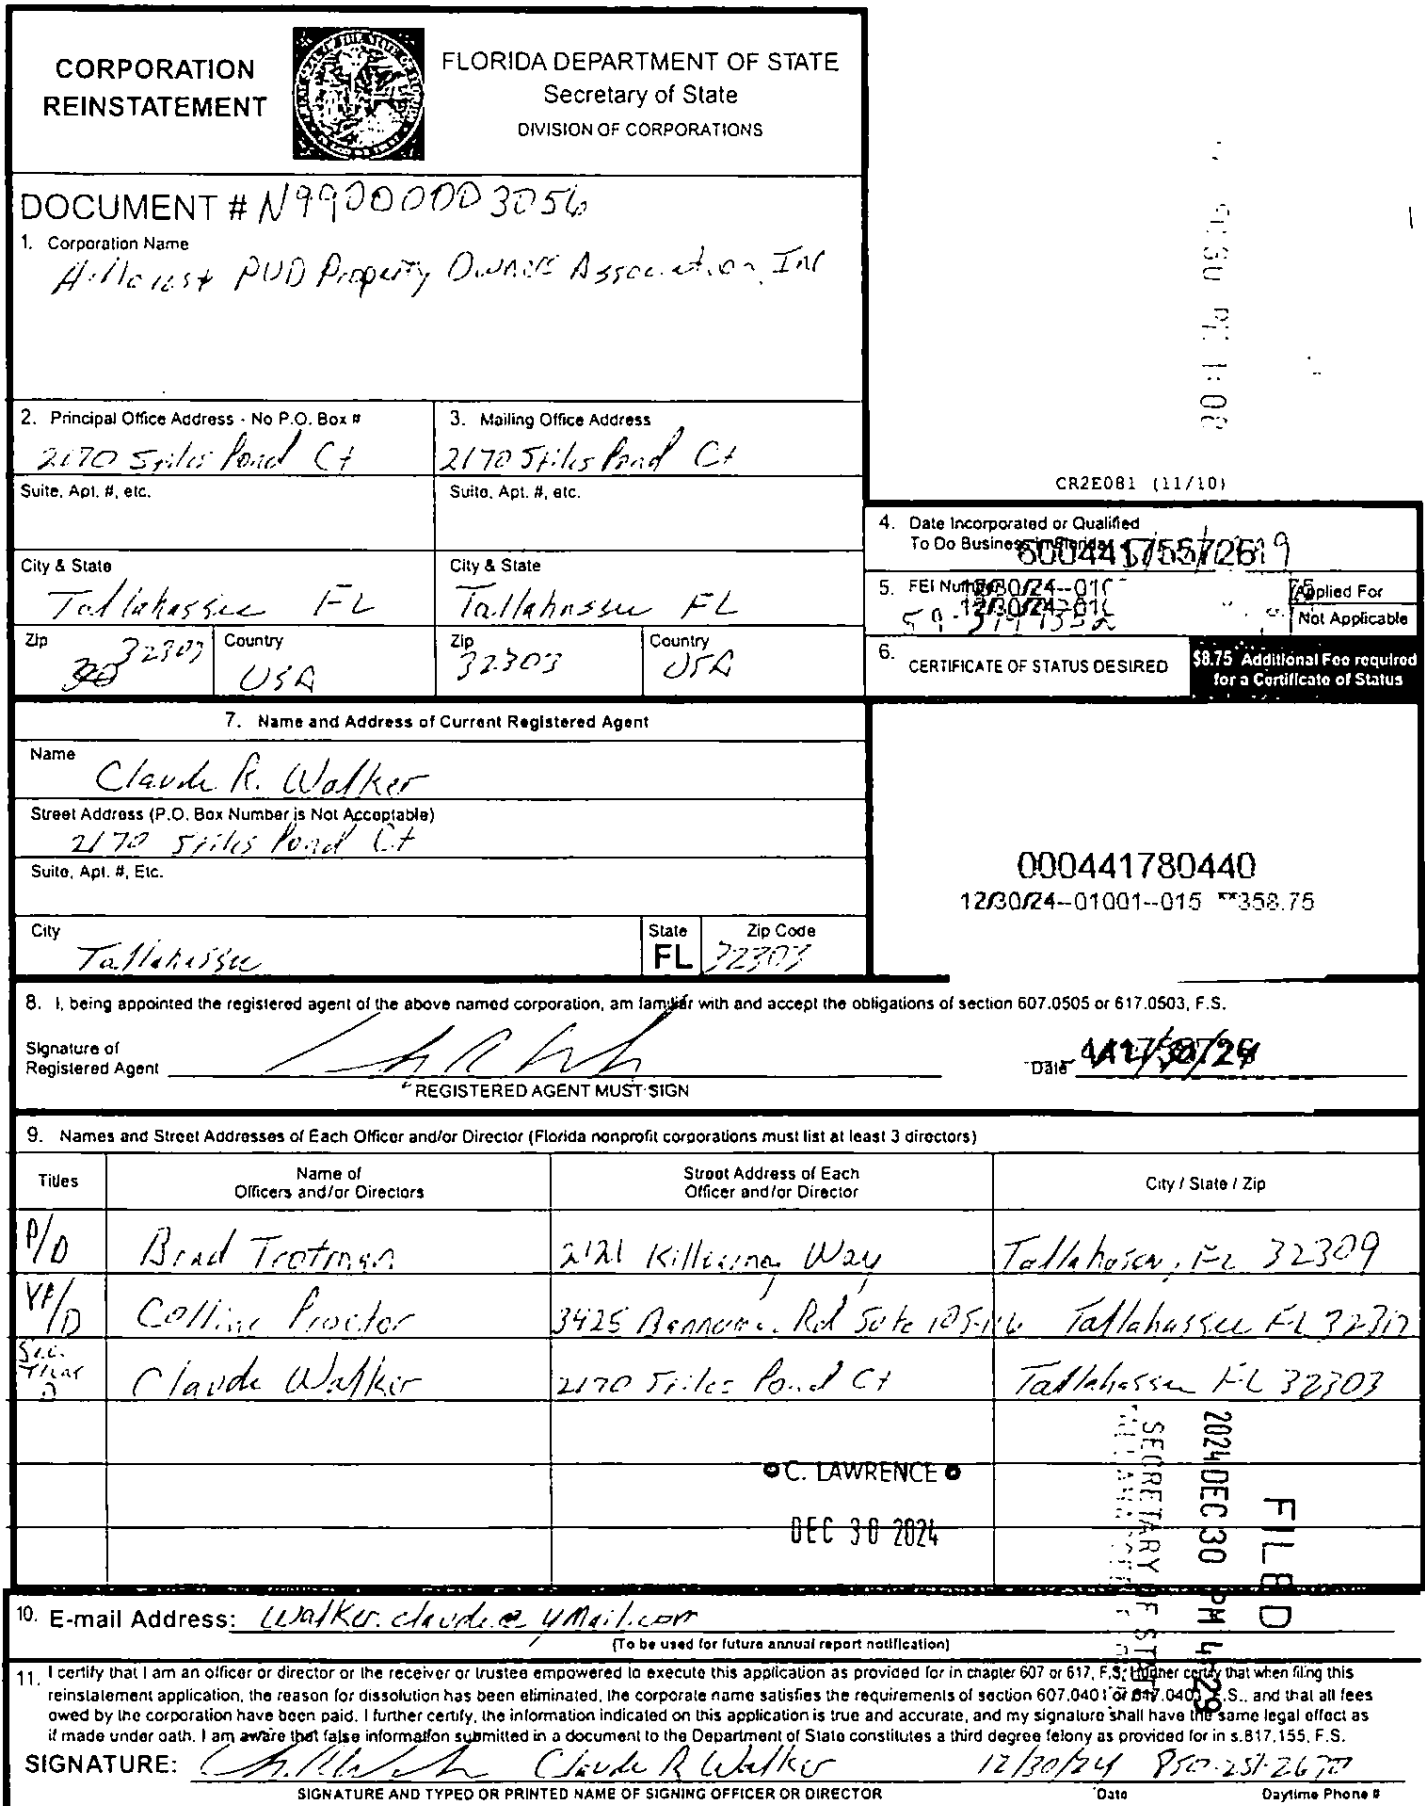 CORPORATION
REINSTATEMENT
FLORIDA DEPARTMENT OF STATE
Secretary of State
DIVISION OF CORPORATIONS
DOCUMENT # N99000003056
1. Corporation Name
Hillcrest PUD Property Owners Association, Inc
2. Principal Office Address - No P.O. Box #
2170 Stiles Pond Ct
3. Mailing Office Address
2170 Stiles Pond Ct
Suite, Apt. #, etc.
Suite, Apt. #, etc.
CR2E081 (11/10)
City & State
Tallahassee FL
City & State
Tallahassee FL
Zip
32303
Country
USA
Zip
32303
Country
USA
4. Date Incorporated or Qualified
To Do Business in Florida
5. FEI Number
Applied For
Not Applicable
6. CERTIFICATE OF STATUS DESIRED
$8.75 Additional Fee required
for a Certificate of Status
7. Name and Address of Current Registered Agent
Name
Claude R. Walker
Street Address (P.O. Box Number is Not Acceptable)
2170 Stiles Pond Ct
Suite, Apt. #, Etc.
City
Tallahassee
State
FL
Zip Code
32303
000441780440
12/30/24--01001--015 **358.75
8. I, being appointed the registered agent of the above named corporation, am familiar with and accept the obligations of section 607.0505 or 617.0503, F.S.
Signature of
Registered Agent
REGISTERED AGENT MUST SIGN
Date
9. Names and Street Addresses of Each Officer and/or Director (Florida nonprofit corporations must list at least 3 directors)
Titles
Name of
Officers and/or Directors
Street Address of Each
Officer and/or Director
City / State / Zip
P/D Brad Trotman 2121 Killarney Way Tallahassee, FL 32309
VP/D Proctor 3425 Rd 105- Tallahassee FL
Sec. D Claude Walker 2170 Stiles Pond Ct Tallahassee FL 32303
C. LAWRENCE
DEC 30 2024
FILED
2024 DEC 30 PM 4:29
SECRETARY OF STATE
10. E-mail Address: walker.claude@ymail.com
(To be used for future annual report notification)
11. I certify that I am an officer or director or the receiver or trustee empowered to execute this application as provided for in chapter 607 or 617, F.S. I further certify that when filing this
reinstatement application, the reason for dissolution has been eliminated, the corporate name satisfies the requirements of section 607.0401 or 617.0401, F.S., and that all fees
owed by the corporation have been paid. I further certify, the information indicated on this application is true and accurate, and my signature shall have the same legal effect as
if made under oath. I am aware that false information submitted in a document to the Department of State constitutes a third degree felony as provided for in s.817.155, F.S.
SIGNATURE: Claude R Walker 12/30/24 850-251-2670
SIGNATURE AND TYPED OR PRINTED NAME OF SIGNING OFFICER OR DIRECTOR Date Daytime Phone #